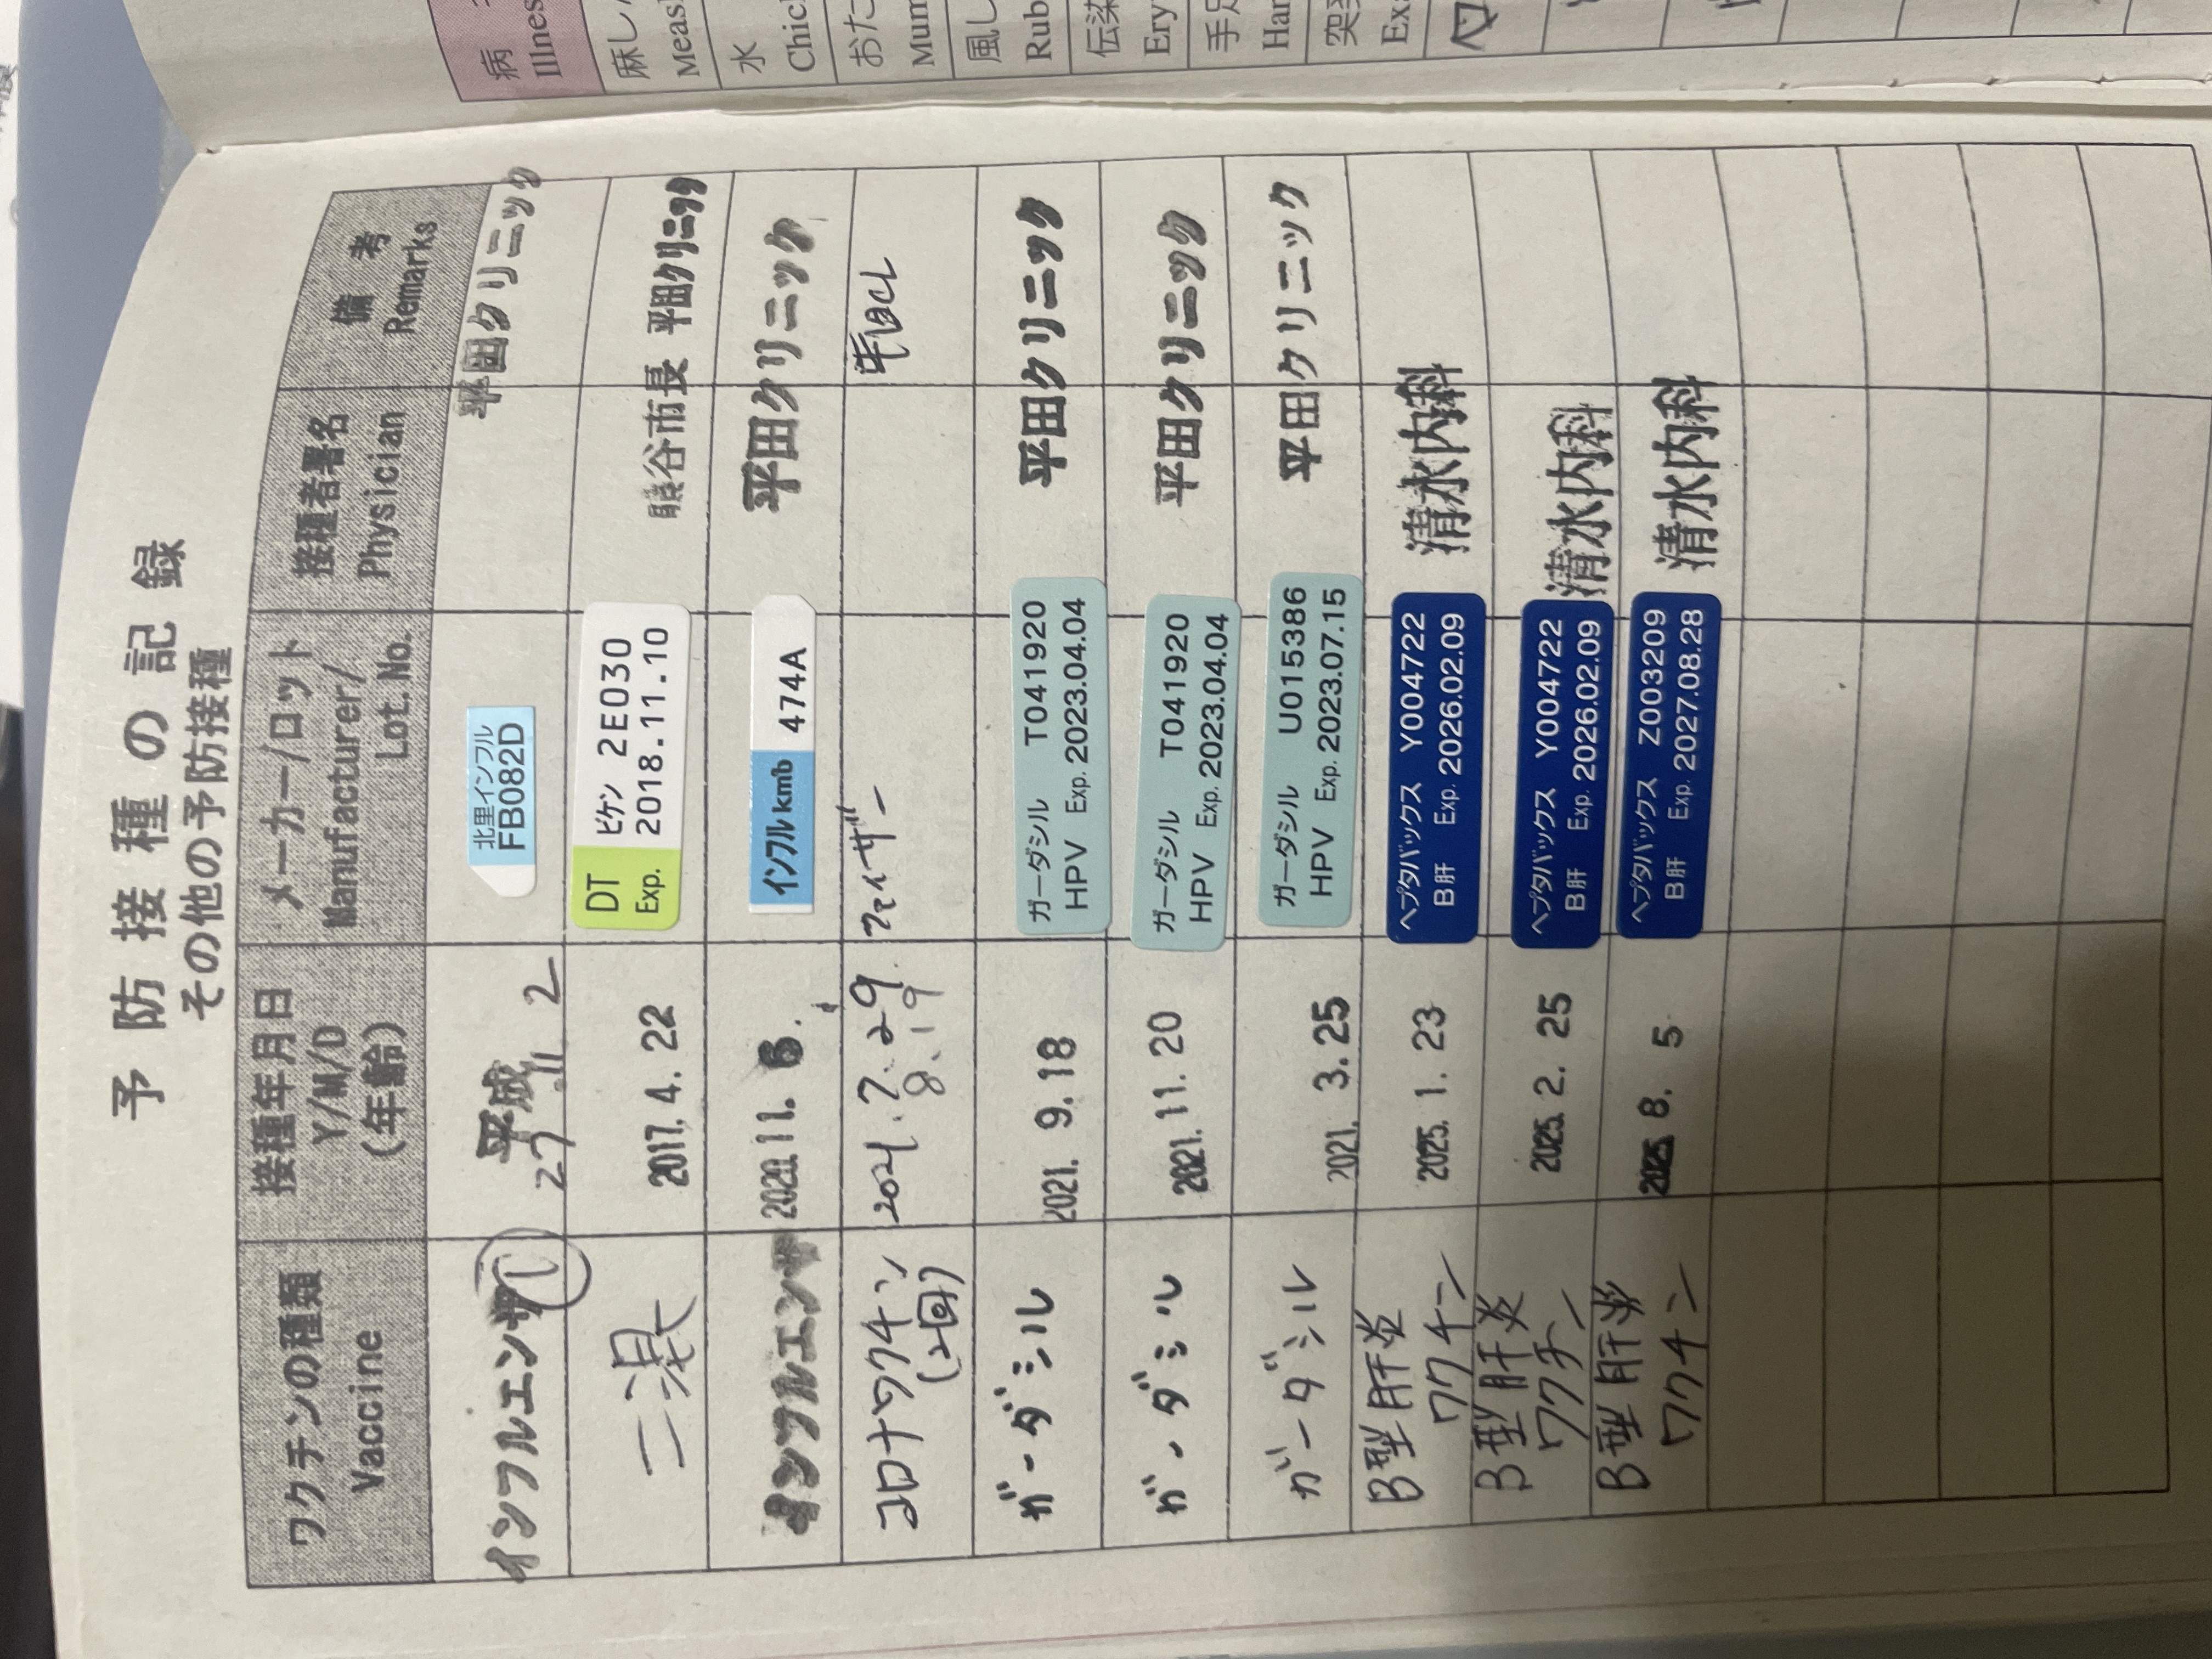 予防接種の記録
その他の予防接種
ワクチンの種類 Vaccine
接種年月日 Y/M/D (年齢)
メーカー/ロット Manufacturer/Lot.No.
接種者署名 Physician
備考 Remarks
インフルエンザ 平成27.11.2 北里インフル FB082D 平田クリニック
二混 2017.4.22 DT ビケン 2E030 Exp. 2018.11.10 熊谷市長 平田クリニック
インフルエンザ 2020.11.6. インフルkmb 474A 平田クリニック
コロナワクチン (2回) 2021.7.29 8.19 ファイザー 平田CL
ガーダシル 2021.9.18 ガーダシル T041920 HPV Exp. 2023.04.04 平田クリニック
ガーダシル 2021.11.20 ガーダシル T041920 HPV Exp. 2023.04.04 平田クリニック
ガーダシル 2021.3.25 ガーダシル U015386 HPV Exp. 2023.07.15 平田クリニック
B型肝炎ワクチン 2025.1.23 ヘプタバックス Y004722 B肝 Exp. 2026.02.09 清水内科
B型肝炎ワクチン 2025.2.25 ヘプタバックス Y004722 B肝 Exp. 2026.02.09 清水内科
B型肝炎ワクチン 2025 8.5 ヘプタバックス Z003209 B肝 Exp. 2027.08.28 清水内科
病
Illnes
麻し
Measl
水
Chic
おた
Mum
風し
Rub
伝染
Ery
手足
Har
突発
Exa